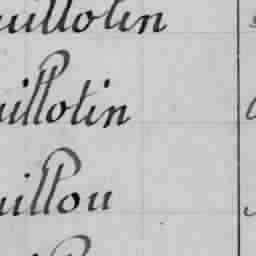 uillotin
uillotin
uillou